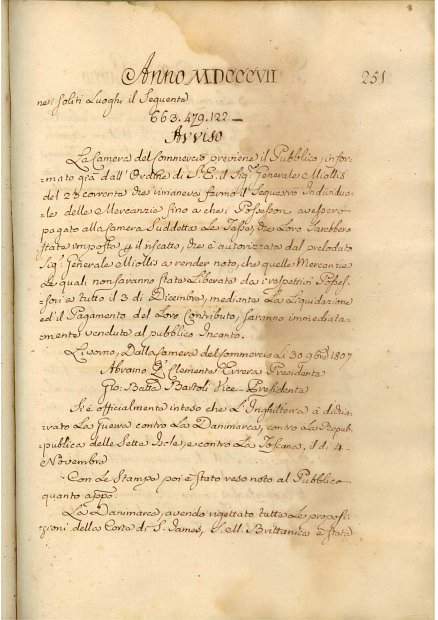 Anno MDCCCVII 251
nei soliti Luoghi il Seguente
663.479.122.—
Avviso
La Camera del Commercio previene il Pubblico, infor-
mato già dall'Ordine di S. E. il Sig. Generale Miollis
del 28 corrente che rimaneva fermo il Sequestro Individua-
=le delle Mercanzie fino a che i Possessori avessero
pagato alla Camera Suddetta le Tasse, che Loro sarebbero
state imposte p il riscatto, che è autorizzata dal prelodato
Sig. Generale Miollis a render noto, che quelle Mercanzie
Le quali non saranno state Liberate dai respettivi Posses-
sori a tutto il 3 di Dicembre, mediante La Liquidazione
ed il Pagamento del Loro Contributo, saranno immediata-
=mente vendute al pubblico Incanto.
Livorno, Dalla Camera del Commercio Li 30 9bre 1807
Abramo Clemente Errera Presidente
Gio: Batta Bartoli Vice-Presidente
Si è officialmente inteso che L'Inghilterra à dichia-
rato La Guerra contro La Danimarca, contro La Repub-
pubblica delle Sette Isole, e contro La Toscana, il di 4
Novembre
Con Le Stampe poi è stato reso noto al Pubblico
quanto appo:
La Danimarca, avendo rigettato tutte Le proposi-
zioni della Corte di S. James, S. M. Brittanica è stata